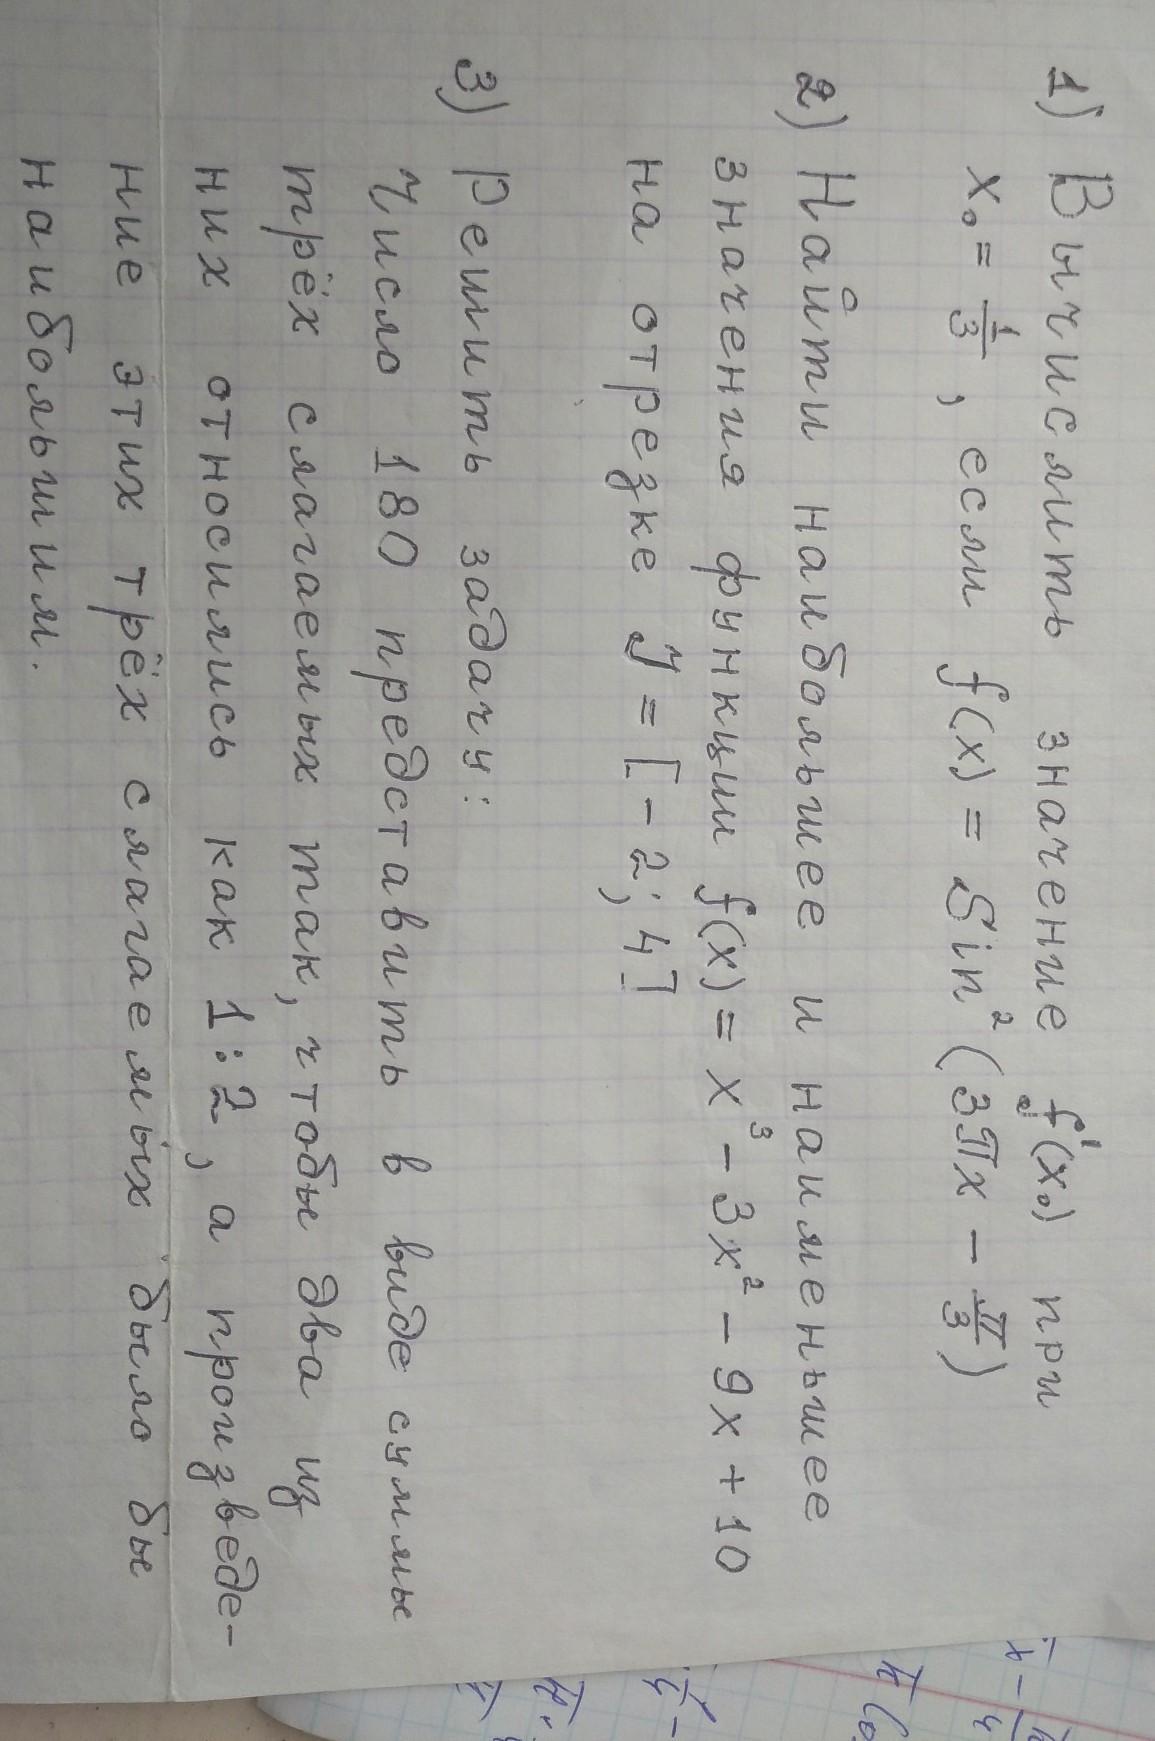 1) Вычислить значение f'(x₀) при
x₀ = 1/3, если f(x) = Sin² (3πx − π/3)
2) Найти наибольшее и наименьшее
значения функции f(x) = x³ − 3x² − 9x + 10
на отрезке y = [−2; 4]
3) Решить задачу:
Число 180 представить в виде суммы
трёх слагаемых так, чтобы два из
них относились как 1:2, а произведе-
ние этих трёх слагаемых было бы
наибольшим.